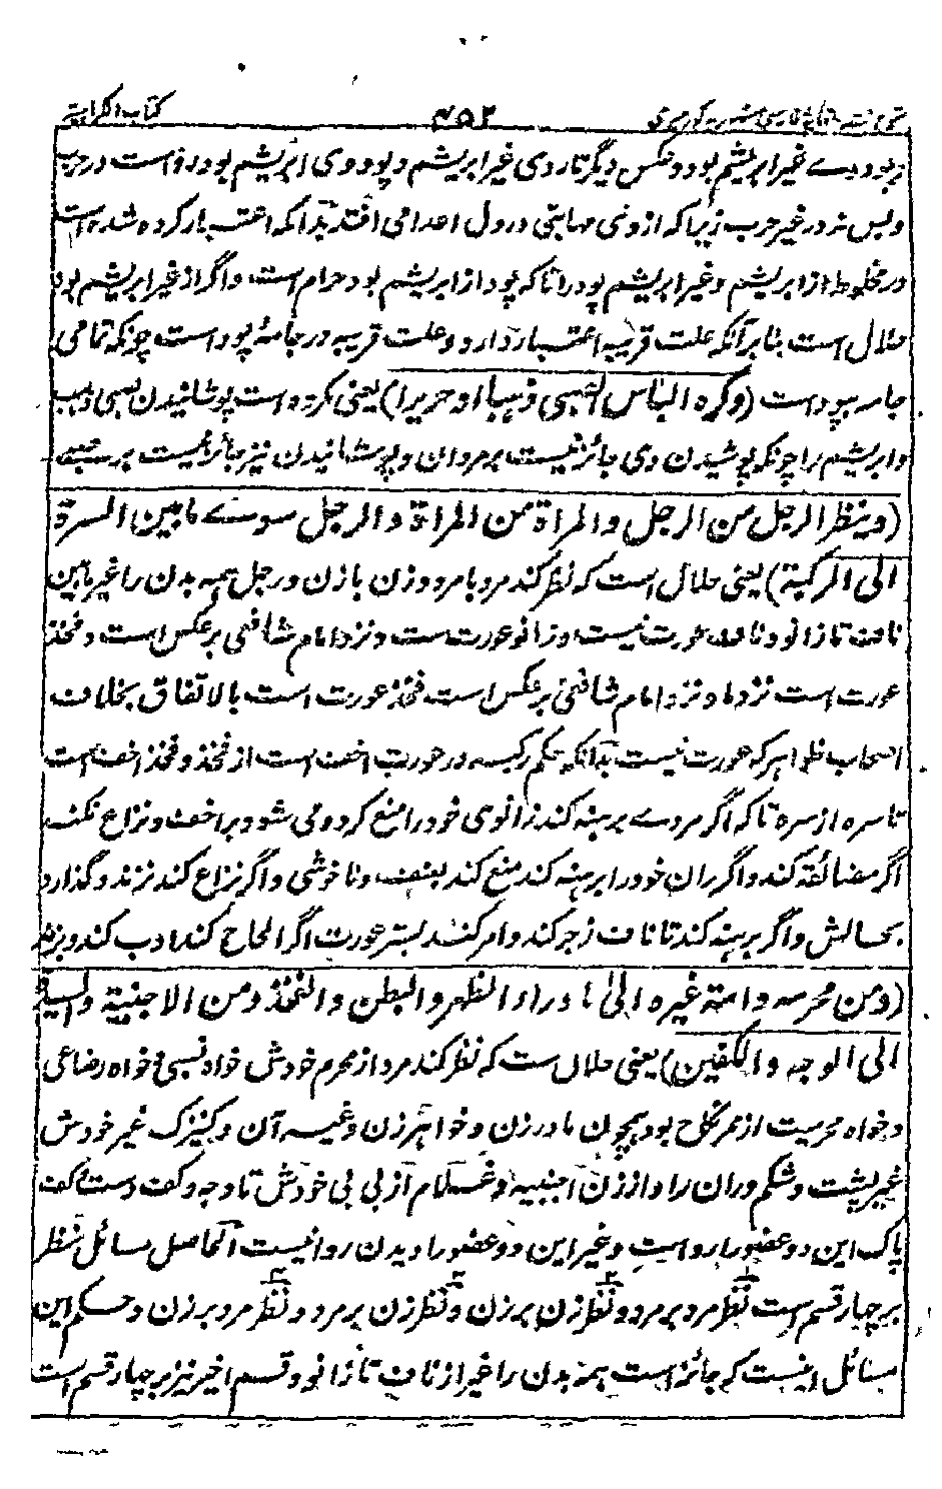 کتاب الکراہیۃ ۴۵۲
و پود وے غیر ابریشم بود و عکس دیگر تار وی غیر ابریشم و پود وی ابریشم بود روا ست در حرب
و بس نہ در غیر حرب زیرا کہ از وی مہابتی در دل اعدا می افتد بدانکہ اعتبار کردہ شدہ است
در مخلوط از ابریشم و غیر ابریشم پود را تا کہ پود از ابریشم بود حرام است و اگر از غیر ابریشم بود
حلال است بنا بر آنکہ علت قریبہ اعتبار دارد و علت قریبہ در جامۂ پود است چونکہ تمامی
جامہ بپود است (وکرہ الباس الصبی ذہبا او حریرا) یعنی مکروہ است پوشانیدن صبی ذہب
و ابریشم را چونکہ پوشیدن وی جائز نیست بر مردان و پوشانیدن نیز جائز نیست بر صبی
(وینظر الرجل من الرجل والمراۃ من المراۃ والرجل سوے ما بین السرۃ
الی الرکبۃ) یعنی حلال است کہ نظر کند مرد با مرد و زن با زن و رجل ہمہ بدن را غیر مابین
ناف تا زانو و ناف عورت نیست و زانو عورت ست و نزد امام شافعی برعکس است و فخذ
عورت است نزد ما و نزد امام شافعی برعکس است فخذ عورت است بالاتفاق بخلاف
اصحاب ظواہر کہ عورت نیست بدانکہ حکم رکبہ در عورت اخف است از فخذ و فخذ اخف است
تا سرہ از سرہ تا کہ اگر مردے برہنہ کند زانوی خود را منع کردہ می شود بر اخف و نزاع نکند
اگر مضائقہ کند و اگر ران خود را برہنہ کند منع کند بعنف و ناخوشی و اگر نزاع کند نزند و گذارد
بحالش و اگر برہنہ کند تا ناف زجر کند و امر کند بستر عورت اگر الحاح کند ادب کند و بزند
(ومن محرمہ وامۃ غیرہ الی ما وراء الظہر والبطن والفخذ ومن الاجنبیۃ والسیدۃ
الی الوجہ والکفین) یعنی حلال ست کہ نظر کند مرد از محرم خودش خواہ نسبی خواہ رضاعی
و خواہ محرمیت از ممر نکاح بود ہمچون مادر زن و خواہر زن و غیر آن و کنیزک غیر خودش
غیر پشت و شکم و ران را و از زن اجنبیہ و غلام از بی بی خودش تا وجہ و کف دست کف
پاک این دو عضو را روا ست و غیر این دو عضو را دیدن روا نیست الحاصل مسائل نظر
بر چہار قسم است نظر مرد بر مرد و نظر زن بر زن و نظر زن بر مرد و نظر مرد بر زن و حکم این
مسائل اینست کہ جائز است ہمہ بدن را غیر از ناف تا زانو و قسم اخیر نیز بر چہار قسم است